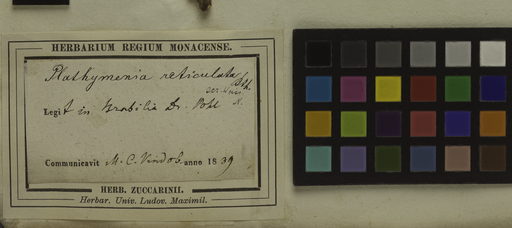 HERBARIUM REGIUM MONACENSE.
Plathymenia reticulata Bth.
Legit in Brasilia Dr. Pohl
Communicavit M. C. Vindob. anno 1839
HERB. ZUCCARINII.
Herbar. Univ. Ludov. Maximil.